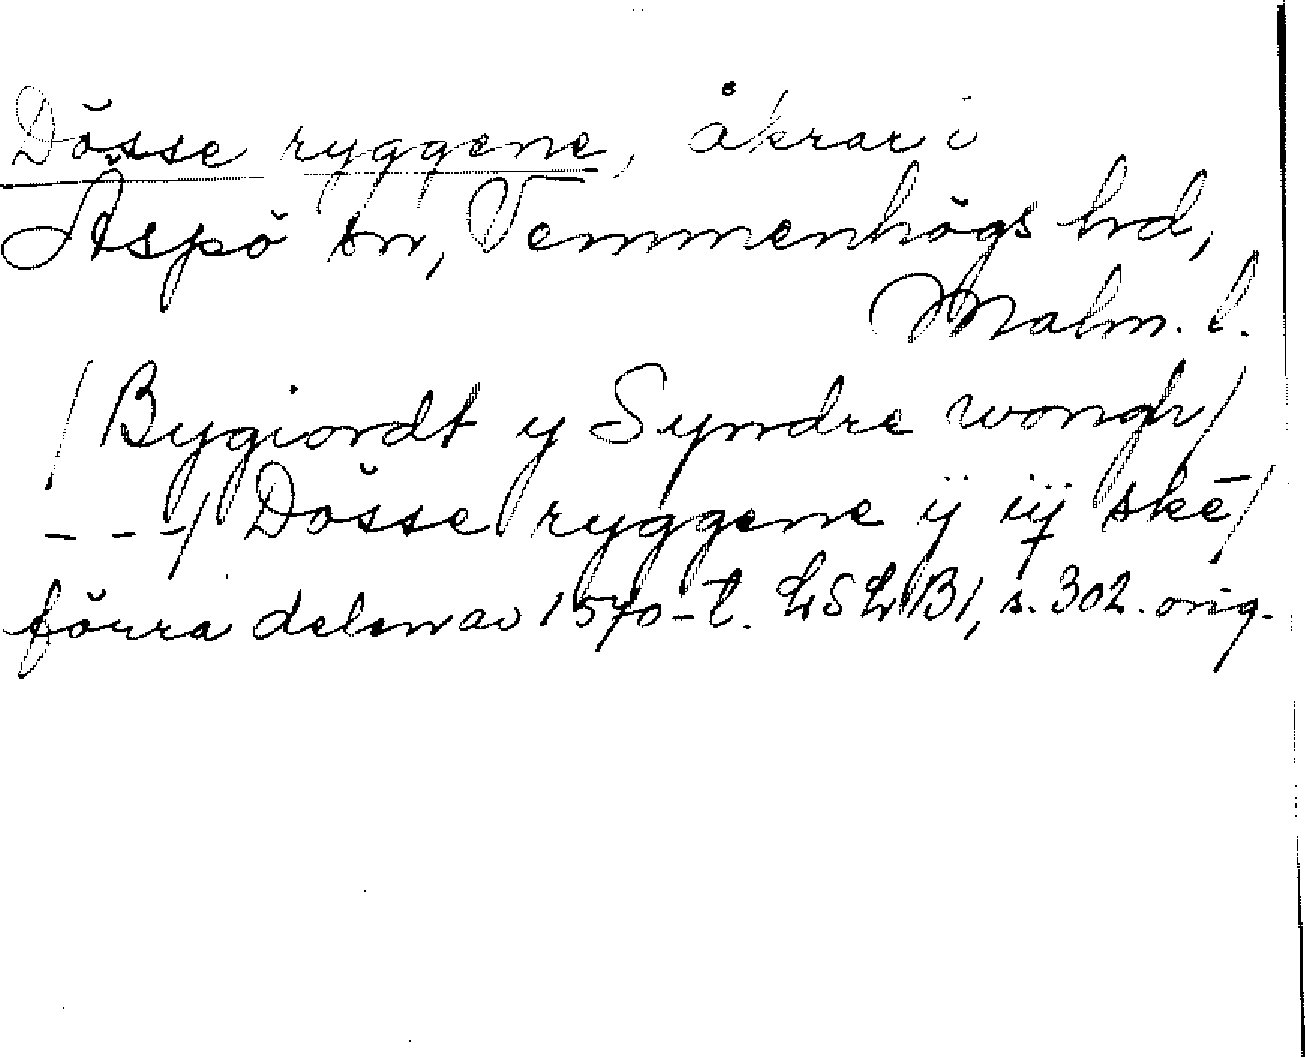 Dösse ryggene, åkrar i
Äspö sn, Vemmenhögs hd,
Malm. l.
/Bygiordt y Syndre wongh/
- - -/ Dösse ryggene ij iij skē/
förra delen av 1570-t. LSLB1, s. 302. orig.